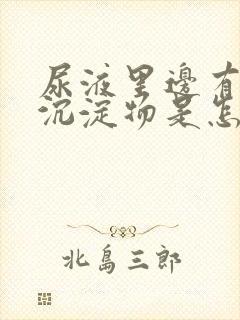 尿液里邊有
沉淀物是怎
北島三郎